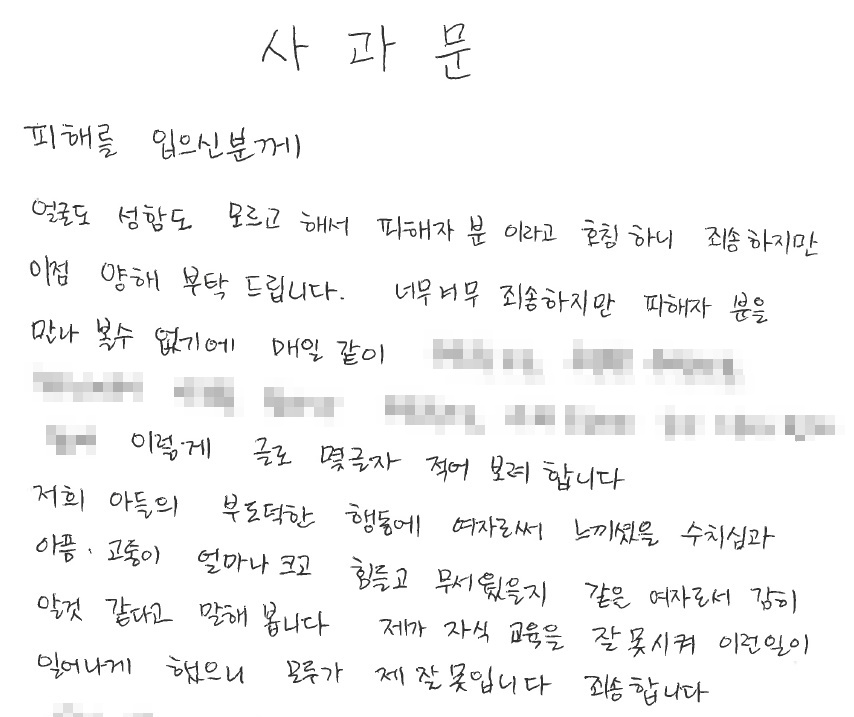 사 과 문
피해를 입으신분께
얼굴도 성함도 모르고 해서 피해자 분 이라고 호칭 하니 죄송하지만
이점 양해 부탁 드립니다. 너무너무 죄송하지만 피해자 분을
만나 볼수 없기에 매일 같이
이렇게 글로 몇글자 적어 보려 합니다
저희 아들의 부도덕한 행동에 여자로써 느끼셨을 수치심과
아픔·고통이 얼마나 크고 힘들고 무서웠을지 같은 여자로서 감히
알것 같다고 말해 봅니다 제가 자식 교육을 잘못시켜 이런일이
일어나게 했으니 모두가 제 잘못입니다 죄송합니다